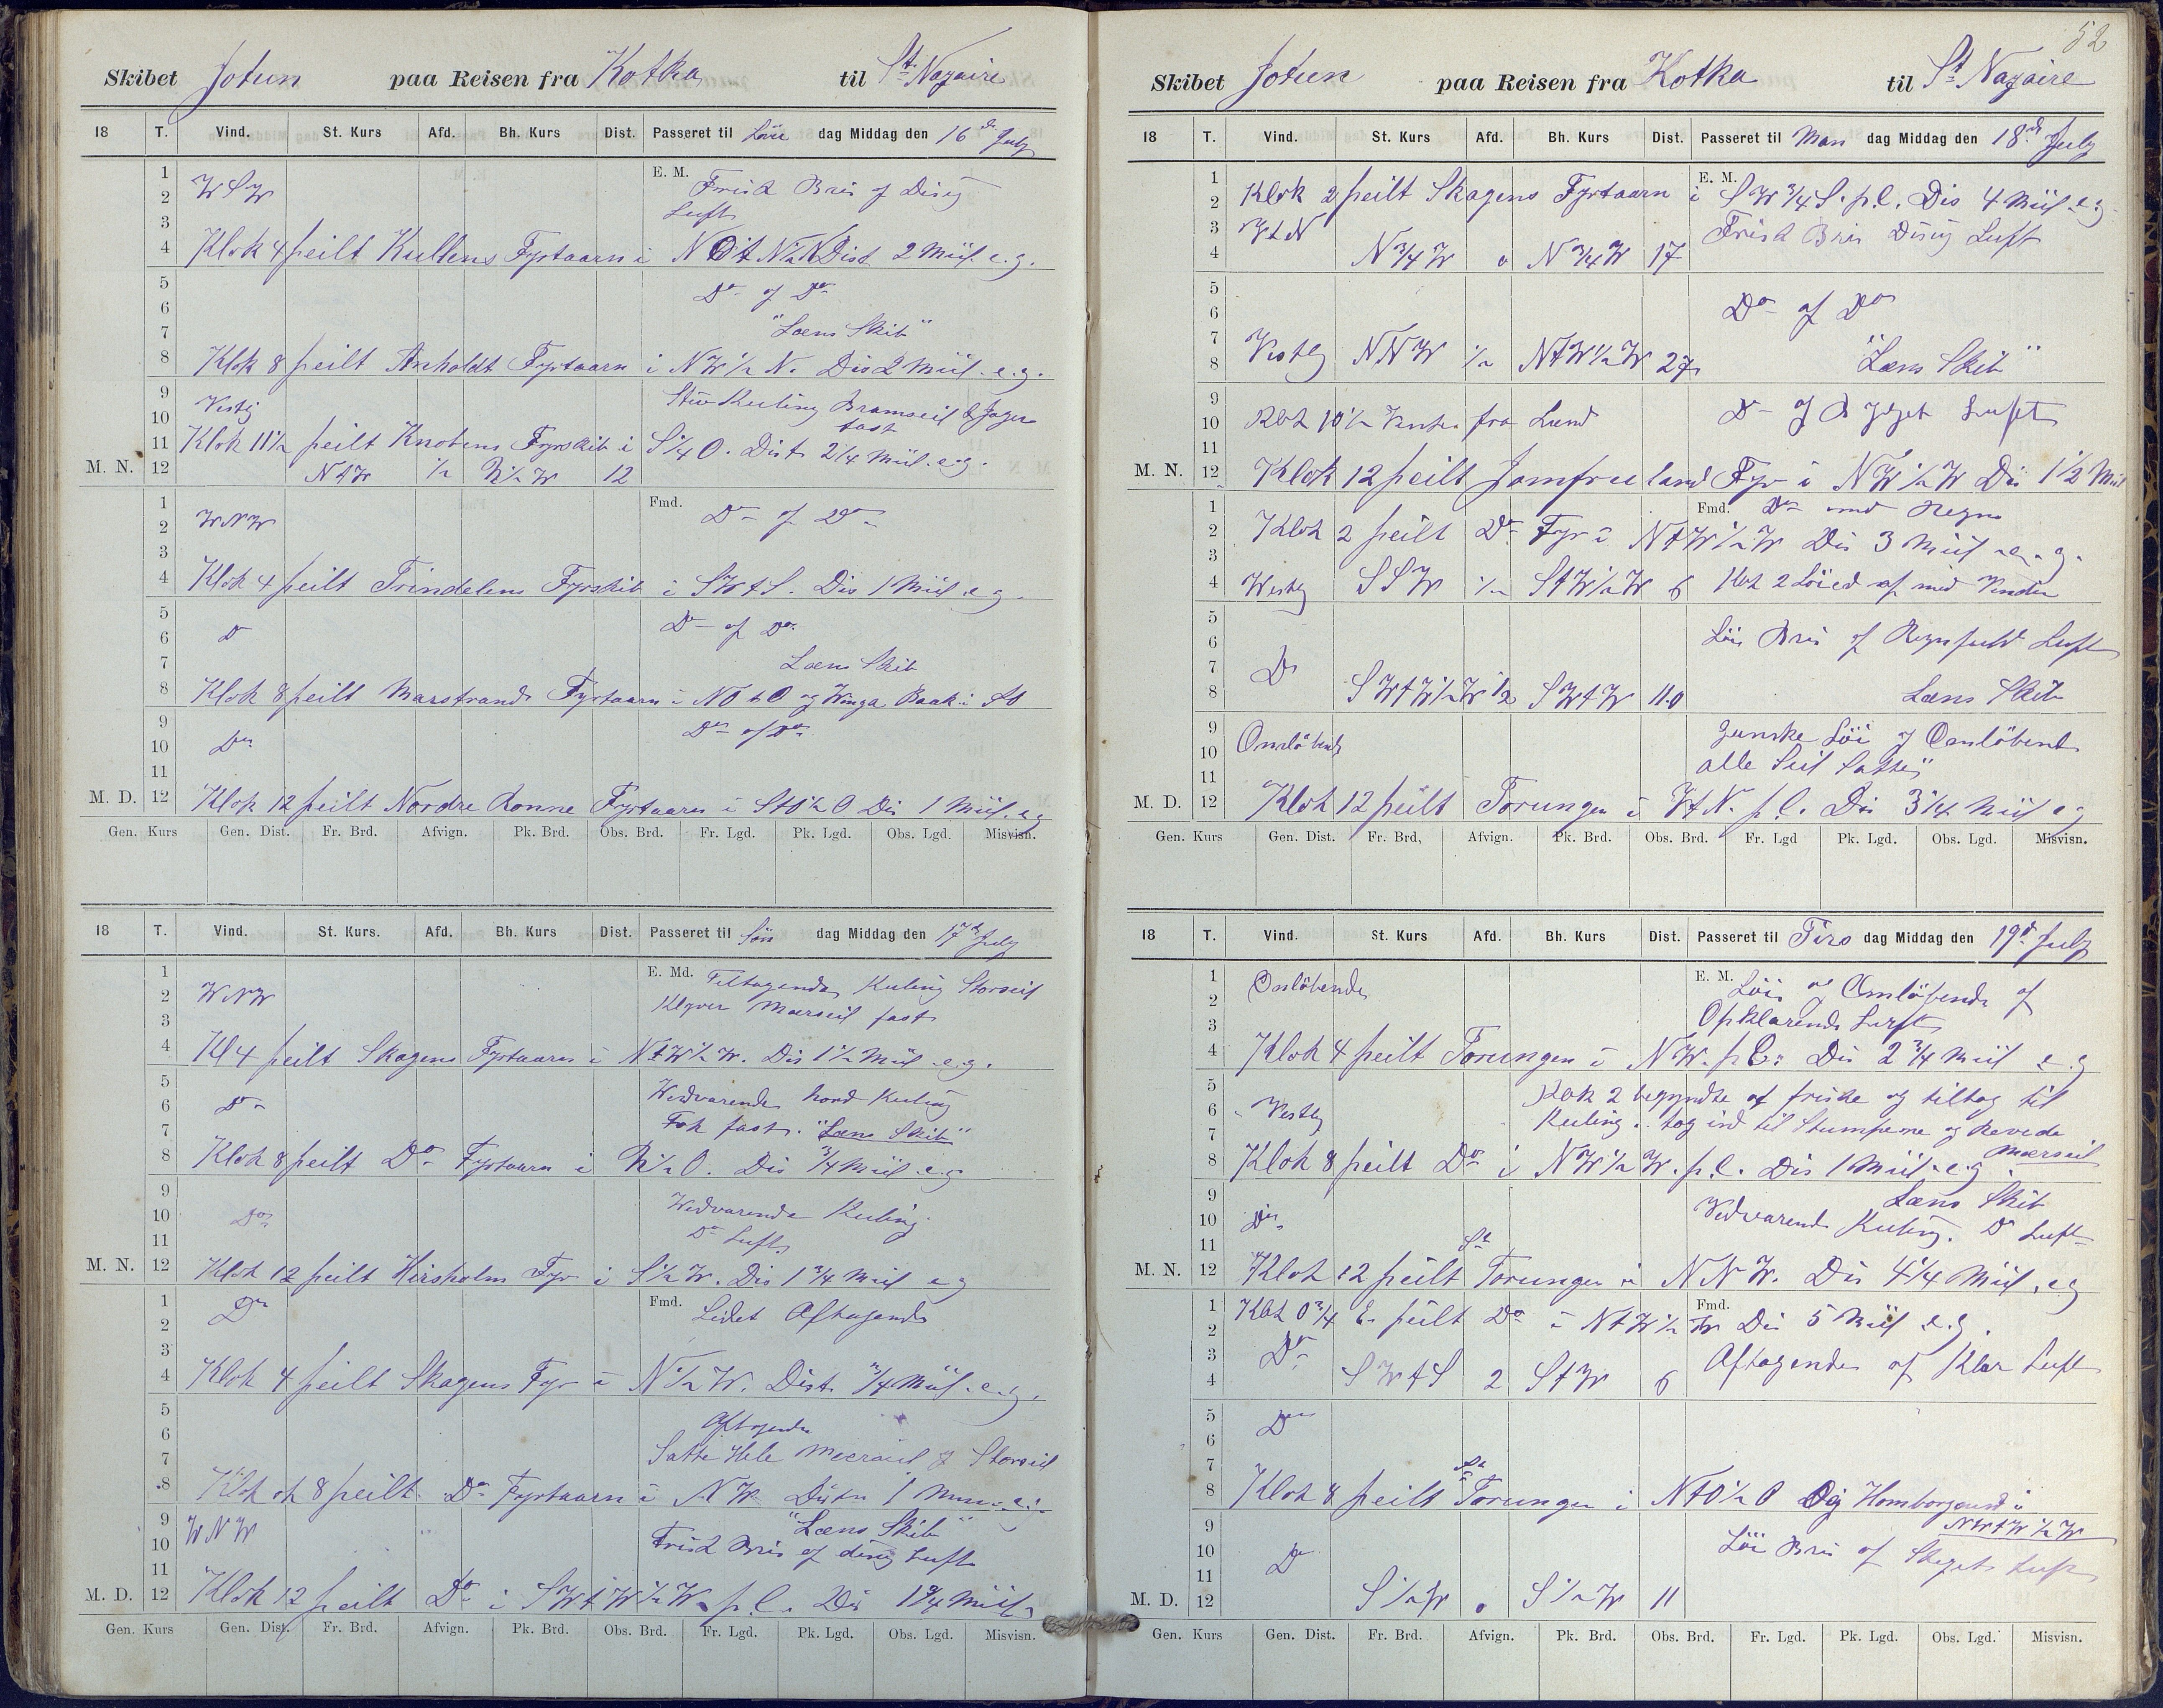 Skibet Jotun paa Reisen fra Kotka til St Nazaire
18 T. Vind. St. Kurs Afd. Bh. Kurs Dist. Passeret til Løver dag Middag den 16de July
1 E. M. Frisk Bris og Disig
2 WSW Luft
3
4 Klok 4 peilt Kullens Fyrtaarn i NOtN½N Dist 2 Miil e.g.
5 Do og Do
6
7 "Læns Skib"
8 Klok 8 peilt Anholdt Fyrtaarn i NW½N. Dis 2 Miil e.g.
9 Vestlg Stiv Kuling Bramseil & Jager
10 fast
11 Klok 11½ peilt Knobens Fyrskib i S¼O. Dist 2¼ Miil e.g.
M. N. 12 NtW ½ N½W 12
1 Fmd. Do og Do
2 WNW
3
4 Klok 4 peilt Trindelens Fyrskib i SWtS. Dis 1 Miil e.g.
5 Do og Do
6 Do
7 Læns Skib
8 Klok 8 peilt Marstrands Fyrtaarn i NOtO og Winga Baak i
9 Do og Do
10 Do
11
M. D. 12 Klok 12 peilt Nordre Rønne Fyrtaarn i StO½O Dis 1 Miil e.g
Gen. Kurs Gen. Dist. Fr. Brd. Afvign. Pk. Brd. Obs. Brd. Fr. Lgd. Pk. Lgd. Obs. Lgd. Misvisn.
18 T. Vind. St. Kurs. Afd. Bh. Kurs Dist. Passeret til Søn dag Middag den 17de July
1 E. Md. Tiltagende Kuling Storseil
2 WNW Klyver Mærseil fast
3
4 Kl 4 peilt Skagens Fyrtaarn i NtW½W. Dis 1½ Miil e.g.
5 Vedvarende haard Kuling
6 Do
7 Fok fast. "Læns Skib"
8 Klok 8 peilt Do Fyrtaarn i N½O. Dis ¾ Miil e.g
9 Vedvarende Kuling
10 Do
11 Do Luft
M. N. 12 Klok 12 peilt Hirsholm Fyr i S½W. Dis 1¾ Miil e g
1 Do Fmd. Lidet Aftagende
2
3
4 Klok 4 peilt Skagens Fyr i N½W. Dist ¾ Miil e.g.
5 Aftagende
6
7 Satte Hele Mærseil & Storseil
8 Klok 8 peilt Do Fyrtaarn i NW 1 e.g.
9 WNW "Læns Skib"
10 Frisk Bris og disig Luft
11
M. D. 12 Klok 12 peilt Do i SWtW½W. p.C. Dis 1¾ Miil
Gen. Kurs Gen. Dist. Fr. Brd. Afvign. Pk. Brd. Obs. Brd. Fr. Lgd. Pk. Lgd. Obs. Lgd. Misvisn.
52
Skibet Jotun paa Reisen fra Kotka til St Nazaire
18 T. Vind. St. Kurs Afd. Bh. Kurs Dist. Passeret til Man dag Middag den 18de July
1 E. M.
2 Klok 2 peilt Skagens Fyrtaarn i SW¾S. p.C. Dis 4 Miil e.g.
3 VtN Frisk Bris Disig Luft
4 N¾W o N¾W 17
5 Do og Do
6
7 Vestlg
8 NNW ½ NtW½W 27 "Læns Skib"
9 Do og Bygget Luft
10 Klok 10½ fra Land
11
M. N. 12 Klok 12 peilt Jomfruland Fyr i NW½W Dis 1½ Miil
1 Fmd. Do med Regn
2 Klok 2 peilt Do Fyr i NtW½W Dis 3 Miil e.g.
3
4 Vestlg SSW ½ StW½W 6 Klok 2 Løied af med Vinden
5
6 Løi Bris og Regnfuld Luft
7 Do
8 SWtW½W ½ SWtW 11.0 Læns Skib
9 Ganske Løi og Omløbent
10 Omløbende alle Seil Satte
11
M. D. 12 Klok 12 peilt Torungen i VtN. p.C. Dis 3¼ Miil e g
Gen. Kurs Gen. Dist. Fr. Brd, Afvign. Pk. Brd. Obs. Brd. Fr. Lgd Pk. Lgd. Obs. Lgd. Misvisn.
18 T. Vind. St. Kurs Afd. Bh. Kurs Dist. Passeret til Tirs dag Middag den 19de July
1 Omløbende E. M. Løi og Omløbende og
2 Opklarende Luft
3
4 Klok 4 peilt Torungen i NW. p.C. Dis 2¾ Miil e g
5 Klok 2 begyndte at friske og tiltog til
6 Vestlg Kuling. tog ind til Stumperne og Revede
7 Mærseil
8 Klok 8 peilt Do i NW½W. p.C. Dis 1 Miil e.g
9 Læns Skib
10 Do Vedvarende Kuling. Do Luft
11
M. N. 12 Klok 12 peilt St Torungen i NNW. Dis 4¼ Miil e g
1 Klok 0¾ E. peilt Do i NtW½W Fmd. Dis 5 Miil e.g.
2
3 Do Aftagende og Klar Luft
4 SWtS 2 StW 6
5 Do
6
7
8 Klok 8 peilt St Torungen i NtO½O Og Homborgsund i
9 NWtW½W
10 Do Løi Bris og Skyet Luft
11
M. D. 12 S½W o S½W 11
Gen. Kurs Gen. Dist. Fr. Brd. Afvign. Pk. Brd. Obs. Brd. Fr. Lgd. Pk. Lgd. Obs. Lgd. Misvisn.